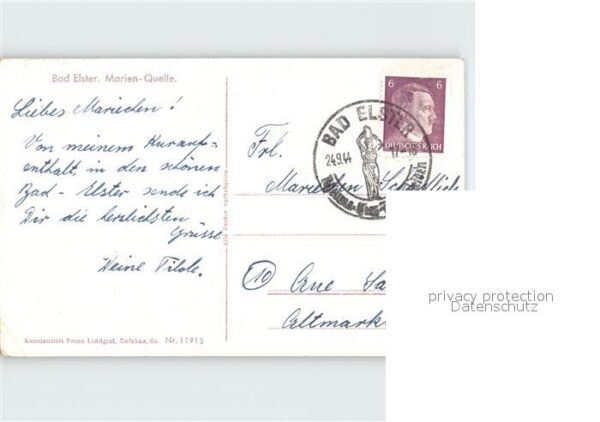 Bad Elster. Marien-Quelle.
Liebes Mariechen!
Von meinem Kurauf=
enthalt, in den schönen
Bad-Elster sende ich
Dir die herzlichsten
Grüsse
Deine Tilde.
Kunstanstalt Franz Landgraf, Zwickau, Sa. Nr. 11915
Alle Rechte vorbehalten
6 6
DEUTSCHES REICH
BAD ELSTER
24.9.44
Frl.
Mariechen
10
Altmark
privacy protection
Datenschutz